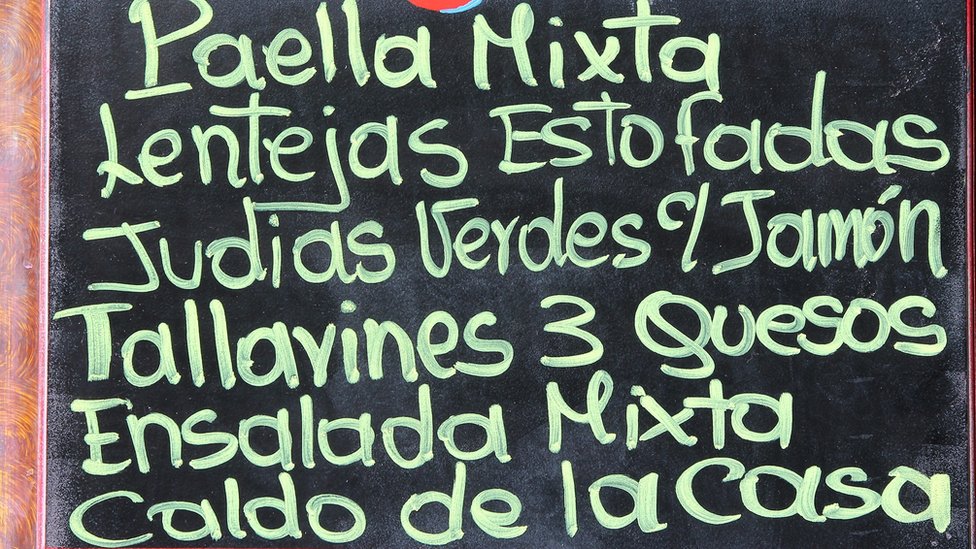 Paella Mixta
Lentejas Estofadas
Judias Verdes c/ Jamón
Tallarines 3 Quesos
Ensalada Mixta
Caldo de la Casa